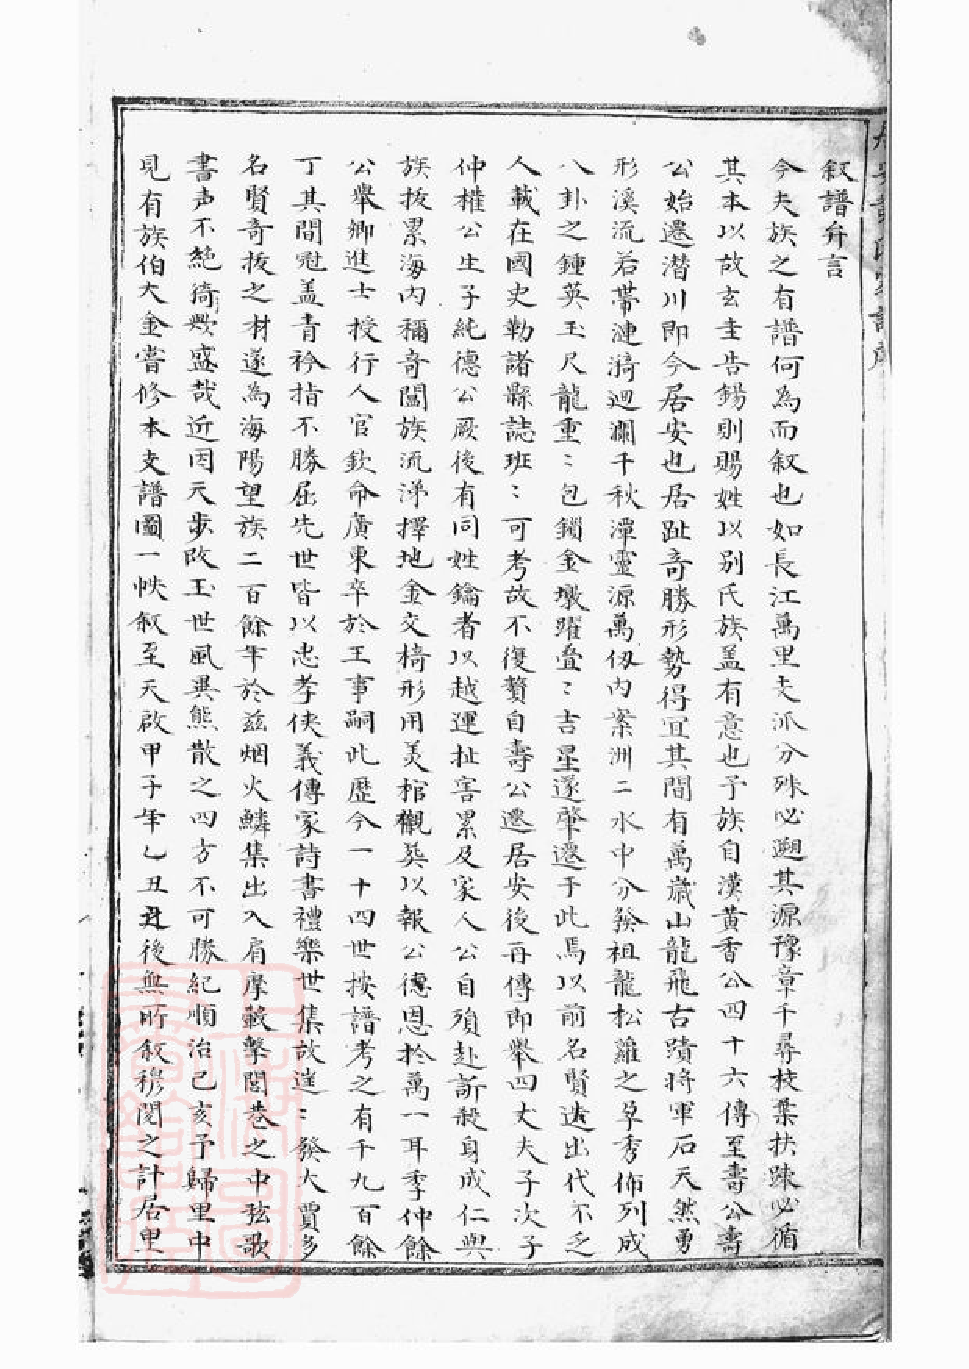 叙譜弁言
今夫族之有譜何為而叙也如長江萬里支派分殊必遡其源豫章千尋枝葉扶踈必循
其本以故玄圭告錫則賜姓以别氏族盖有意也予族自漢黄香公四十六傳至壽公壽
公始遷潜川即今居安也居趾竒勝形勢得宜其間有萬嵗山龍飛古蹟将軍石天然勇
形溪流若帶漣漪迴瀾千秋潭靈源萬仭内案洲二水中分發祖龍松蘿之阜秀佈列成
八卦之鍾英玉尺龍重﹕包鎖金墩躍叠﹕吉星遂肇遷于此焉以前名賢迭出代不乏
人載在國史勒諸縣誌班﹕可考故不復贅自壽公遷居安後再傳即舉四丈夫子次子
仲權公生子純德公厥後有同姓鑰者以越運扯害累及家人公自殞赴訴殺身成仁與
族拔累海内稱竒闔族流涕擇地金交椅形用美棺櫬𦵏以報公德恩於萬一耳季仲餘
公舉鄉進士授行人官欽命廣東卒於王事嗣此歷今一十四世按譜考之有千九百餘
丁其間冠盖青衿指不勝屈先世皆以忠孝俠義傳家詩書禮樂世集故逹﹕發大賈多
名賢竒拔之材遂為海陽望族二百餘年於兹烟火鱗集出入肩摩轂擊閭巷之中弦歌
書声不絶猗歟盛哉近因天步改玉世風異態散之四方不可勝紀順治己亥予歸里中
見有族伯大金嘗修本支譜圖一帙叙至天啟甲子年乙丑丑後無所叙穆閔之計居里